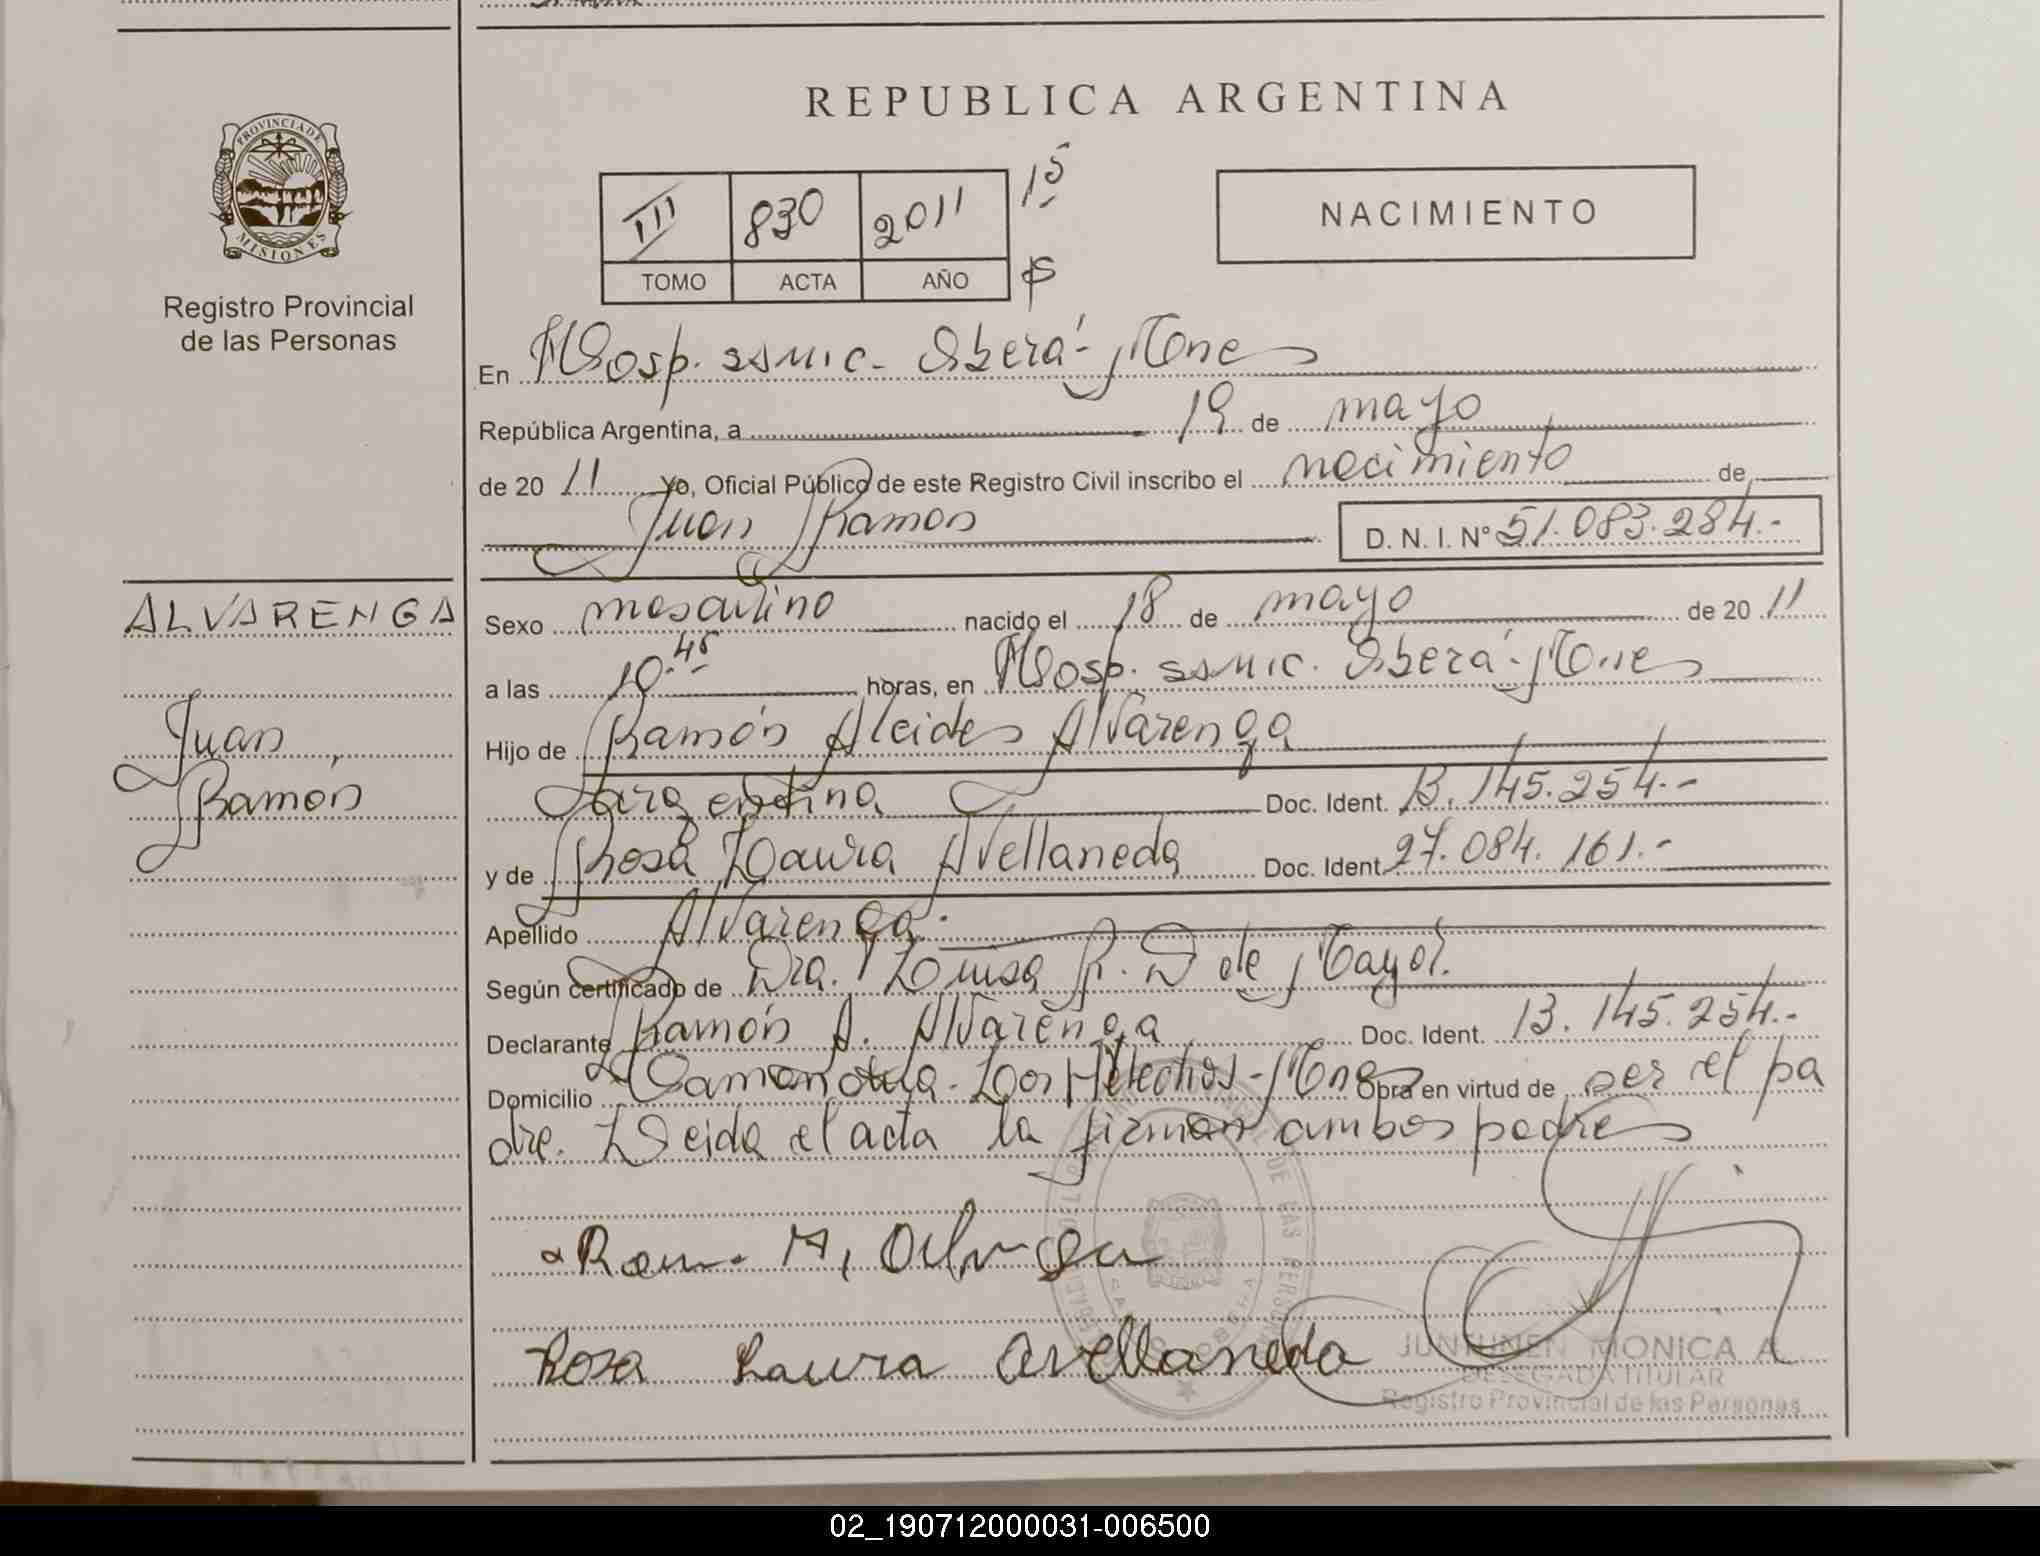 REPUBLICA ARGENTINA
PROVINCIA DE
MISIONES
Registro Provincial
de las Personas
III 830 2011 15
TOMO ACTA AÑO
NACIMIENTO
En Hosp. SSMIC - Oberá - Mnes
República Argentina, a 19 de mayo
de 20 11 Yo, Oficial Público de este Registro Civil inscribo el nacimiento de
Juan Ramón
D. N. I. Nº 51.083.284.-
ALVARENGA
Juan
Ramón
Sexo masculino nacido el 18 de mayo de 20 11
a las 10.45 horas, en Hosp. SSMIC. Oberá - Mnes
Hijo de Ramón Alcides Alvarenga
argentina Doc. Ident. 13.145.254.-
y de Rosa Laura Avellaneda Doc. Ident. 27.084.161.-
Apellido Alvarenga.
Según certificado de Dra. Luisa R. D de Mayol.
Declarante Ramón A. Alvarenga Doc. Ident. 13.145.254.-
Domicilio Los Helechos - Mnes Obra en virtud de ser el pa
dre. Leida el acta la firman ambos padres
Rosa Laura Avellaneda
JUNTUNEN MONICA A
DELEGADA TITULAR
Registro Provincial de las Personas
02_190712000031-006500